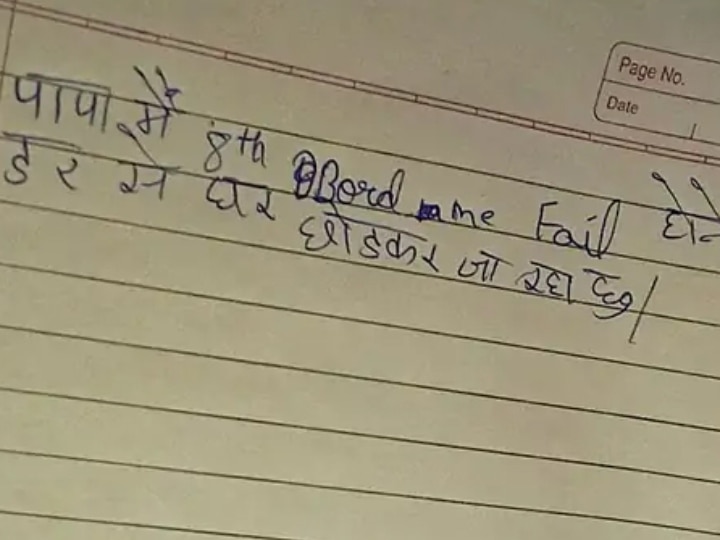 Page No.
Date
पापा मैं 8th Bord me Fail होने
डर से घर छोडकर जा रहा हु।